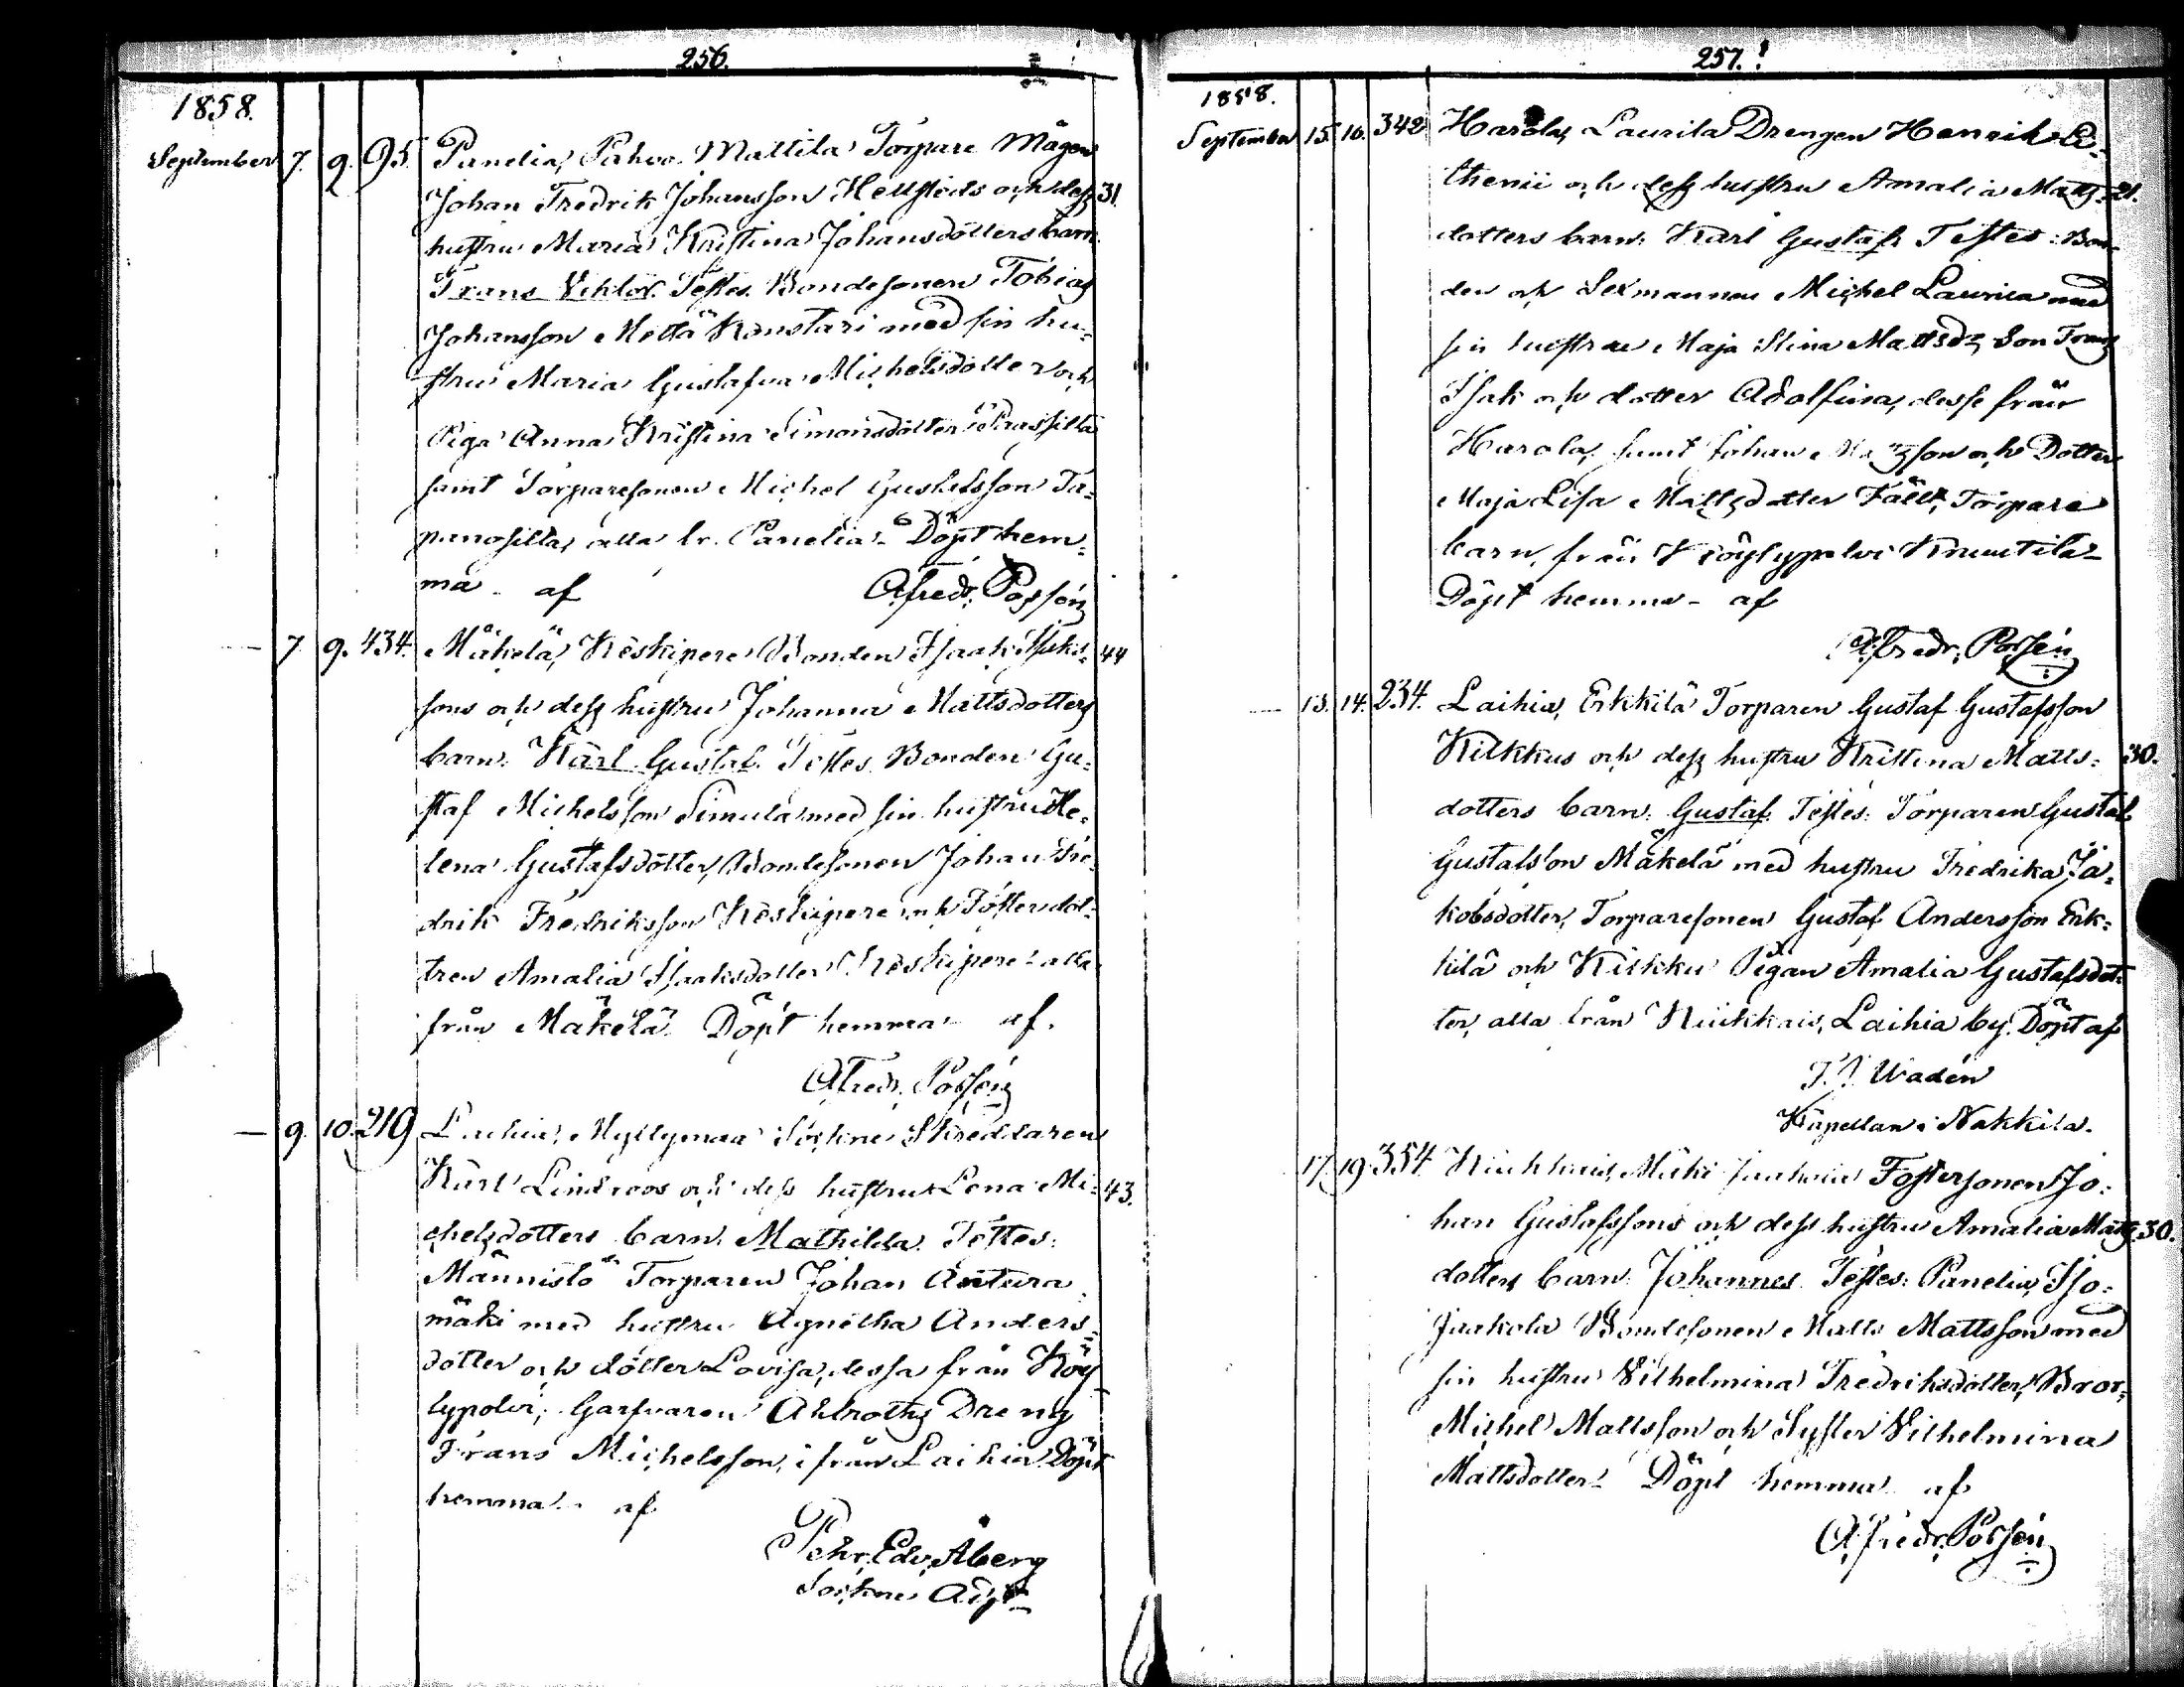 256.
1858.
September 7. 9. 95. Panelia, Pahva Mattila Torpare Mågen
Johan Fredrik Johansson Hellsteds och dess 31.
hustru Maria Kristina Johansdotters barn
Frans Vihtor. Testes. Bondesonen Tobias
Johansson Mettä Konstari med sin hu-
stru Maria Gustafva Michelsdotter och
Piga Anna Kristina Simonsdotter
samt Torparesonen Michel Gustafsson Ta-
panosilta, alla fr. Panelia. Döpt hem-
ma af Alfredr. Possén
7 9. 434. Mäkelä, Keskipere Bonden Isaak Isaks- 44
sons och dess hustru Johanna Mattsdotters
barn. Karl Gustaf. Testes. Bonden Gu-
staf Michelsson Simula med sin hustru He-
lena Gustafsdotter, Bondesonen Johan Fre-
drik Fredriksson Keskipere och Fosterdot-
tren Amalia Isaaksdotter Keskipere alla
från Mäkelä. Döpt hemma af.
Alfredr. Possén
9. 10. 219 Laihia, Myllymaa Sockne Skreddaren
Karl Lindroos och dess hustru Lena Mi- 43.
chelsdotters barn. Mathilda. Testes:
Männistö Torparen Johan Antura
mäki med hustru Agnetha Anders-
dotter och dotter Lovisa, dessa från Köy
lypolvi, Garfvaren Ahlroths Dreng
Frans Michelsson, ifrån Laihia. Döpt
hemma af
Pehr Edv. Åberg
Sockne Adjt
257.
1858.
September 15. 16. 342 Harola, Laurila Drengen Henrik Li-
thenii och dess hustru Amalia Matts- 21.
dotters barn: Karl Gustaf. Testes: Bon-
den och Sexmannen Michel Laurila med
sin hustru Maja Stina Mattsdr, Son Frans
Isak och dotter Adolfina, desse från
Harola, samt Johan Mattsson och Dotter
Maja Lisa Mattsdotter Fält, Torpare
barn, från Köylypolvi Knuutila
Döpt hemma af
Alfredr. Possén
13. 14. 234. Laihia, Erkkilä Torparen Gustaf Gustafsson
Kilkkus och dess hustru Kristina Matts- 30.
dotters barn: Gustaf. Testes: Torparen Gustaf
Gustafsson Mäkelä med hustru Fredrika Ja-
kobsdotter, Torparesonen Gustaf Andersson Erk-
kilä och Kilkku Pigan Amalia Gustafsdot-
ter, alla från Kiukkais, Laihia by. Döpt af
Wadén
Kapellan i Nakkila.
17. 19. 354. Kiukkais, Mäki Jaakola Fostersonen Jo-
han Gustafssons och dess hustru Amalia Matts 30.
dotters barn: Johannes. Testes: Panelia, Iso-
Jaakola Bondesonen Matts Mattsson med
sin hustru Vilhelmina Fredriksdotter, Bror
Michel Mattsson och Syster Vilhelmina
Mattsdotter. Döpt hemma af
Alfredr. Possén